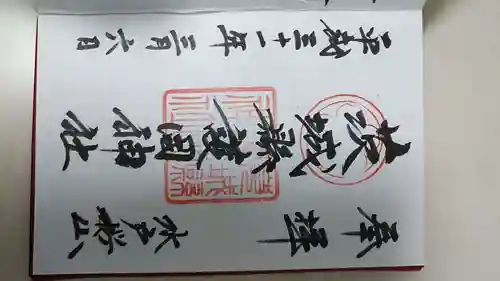 奉拝
水戸桜山
茨城縣護国神社
平成三十一年三月六日